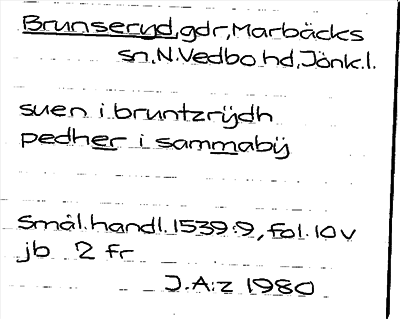 Brunseryd, gdr, Marbäcks
sn, N. Vedbo hd, Jönk. l.
suen i bruntzrÿdh
pedher i sammabÿ
Smål. handl. 1539:9, fol. 10 v
jb 2 fr
J.A:z 1980